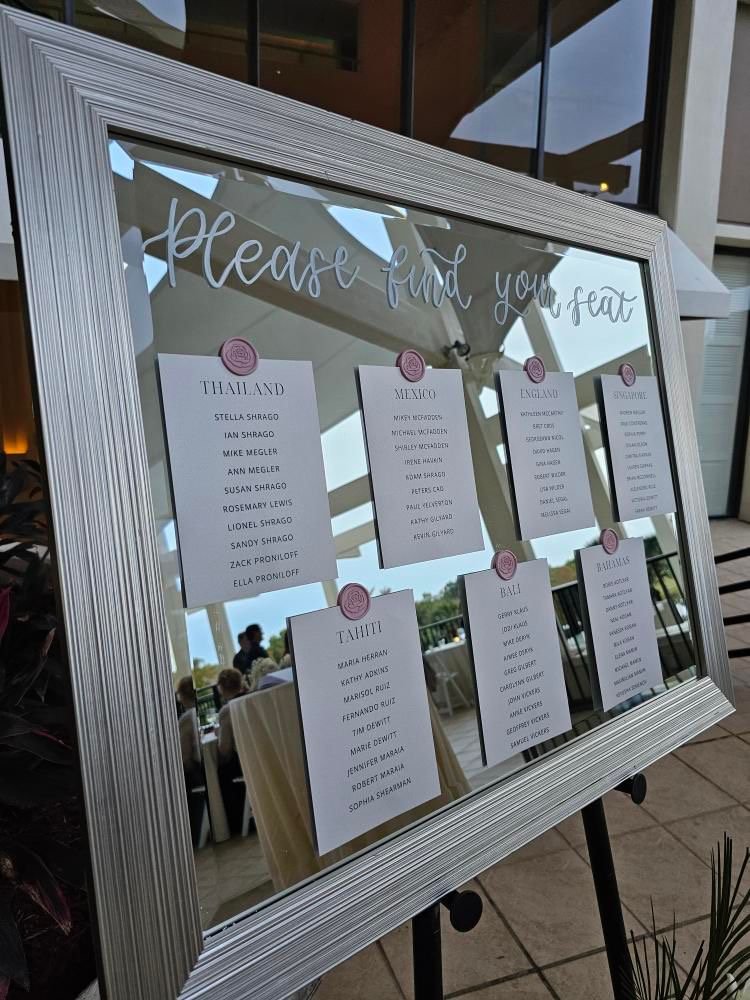 Please find your seat
THAILAND
STELLA SHRAGO
IAN SHRAGO
MIKE MEGLER
ANN MEGLER
SUSAN SHRAGO
ROSEMARY LEWIS
LIONEL SHRAGO
SANDY SHRAGO
ZACK PRONILOFF
ELLA PRONILOFF
MEXICO
MIKEY MCFADDEN
MICHAEL MCFADDEN
SHIRLEY MCFADDEN
IRENE HAVKIN
ADAM SHRAGO
PETERS CAO
PAUL YELVERTON
KATHY GILYARD
KEVIN GILYARD
ENGLAND
KATHLEEN MCCARTHY
BRET COOS
GEORGEANN NICOL
DAVID HAGEN
GINA HAGEN
ROBERT WILDER
LISA WILDER
DANIEL SEGAL
MELISSA SEGAL
SINGAPORE
ANDREW MEGLER
VICTORIA DEWITT
SARAH DEWITT
TAHITI
MARIA HERRAN
KATHY ADKINS
MARISOL RUIZ
FERNANDO RUIZ
TIM DEWITT
MARIE DEWITT
JENNIFER MARAIA
ROBERT MARAIA
SOPHIA SHEARMAN
BALI
GERRY KLAUS
JODI KLAUS
MIKE DERYK
AIMEE DERYK
GREG GILBERT
CAROLYNN GILBERT
JOHN VICKERS
ANNE VICKERS
GEOFFREY VICKERS
SAMUEL VICKERS
BAHAMAS
BORIS KOTLYAR
TAMARA KOTLYAR
DANNY KOTLYAR
YANI KOGAN
VANESSA KOGAN